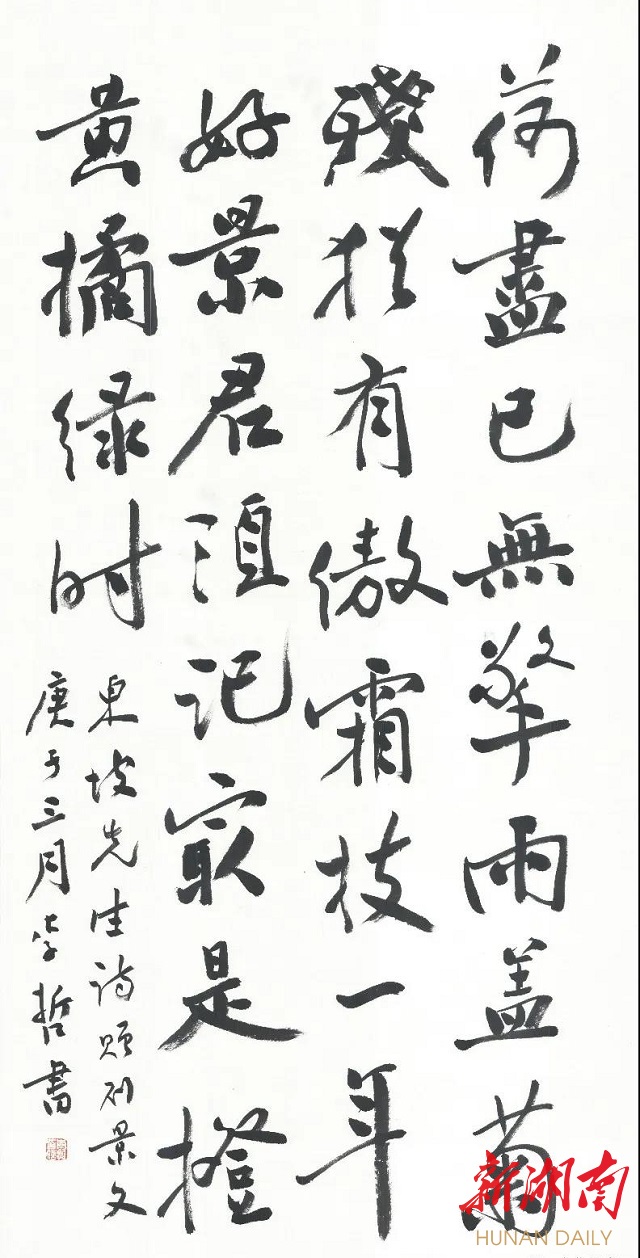 荷盡已無擎雨盖菊
殘猶有傲霜枝一年
好景君須记最是橙
黄橘绿时
東坡先生诗赠刘景文
庚子三月学哲書
新湖南
HUNAN DAILY